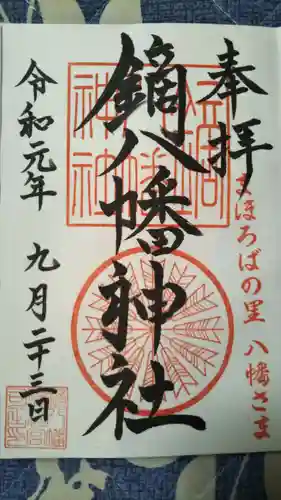 奉拝
まほろばの里 八幡さま
鏑八幡神社
令和元年 九月二十三日